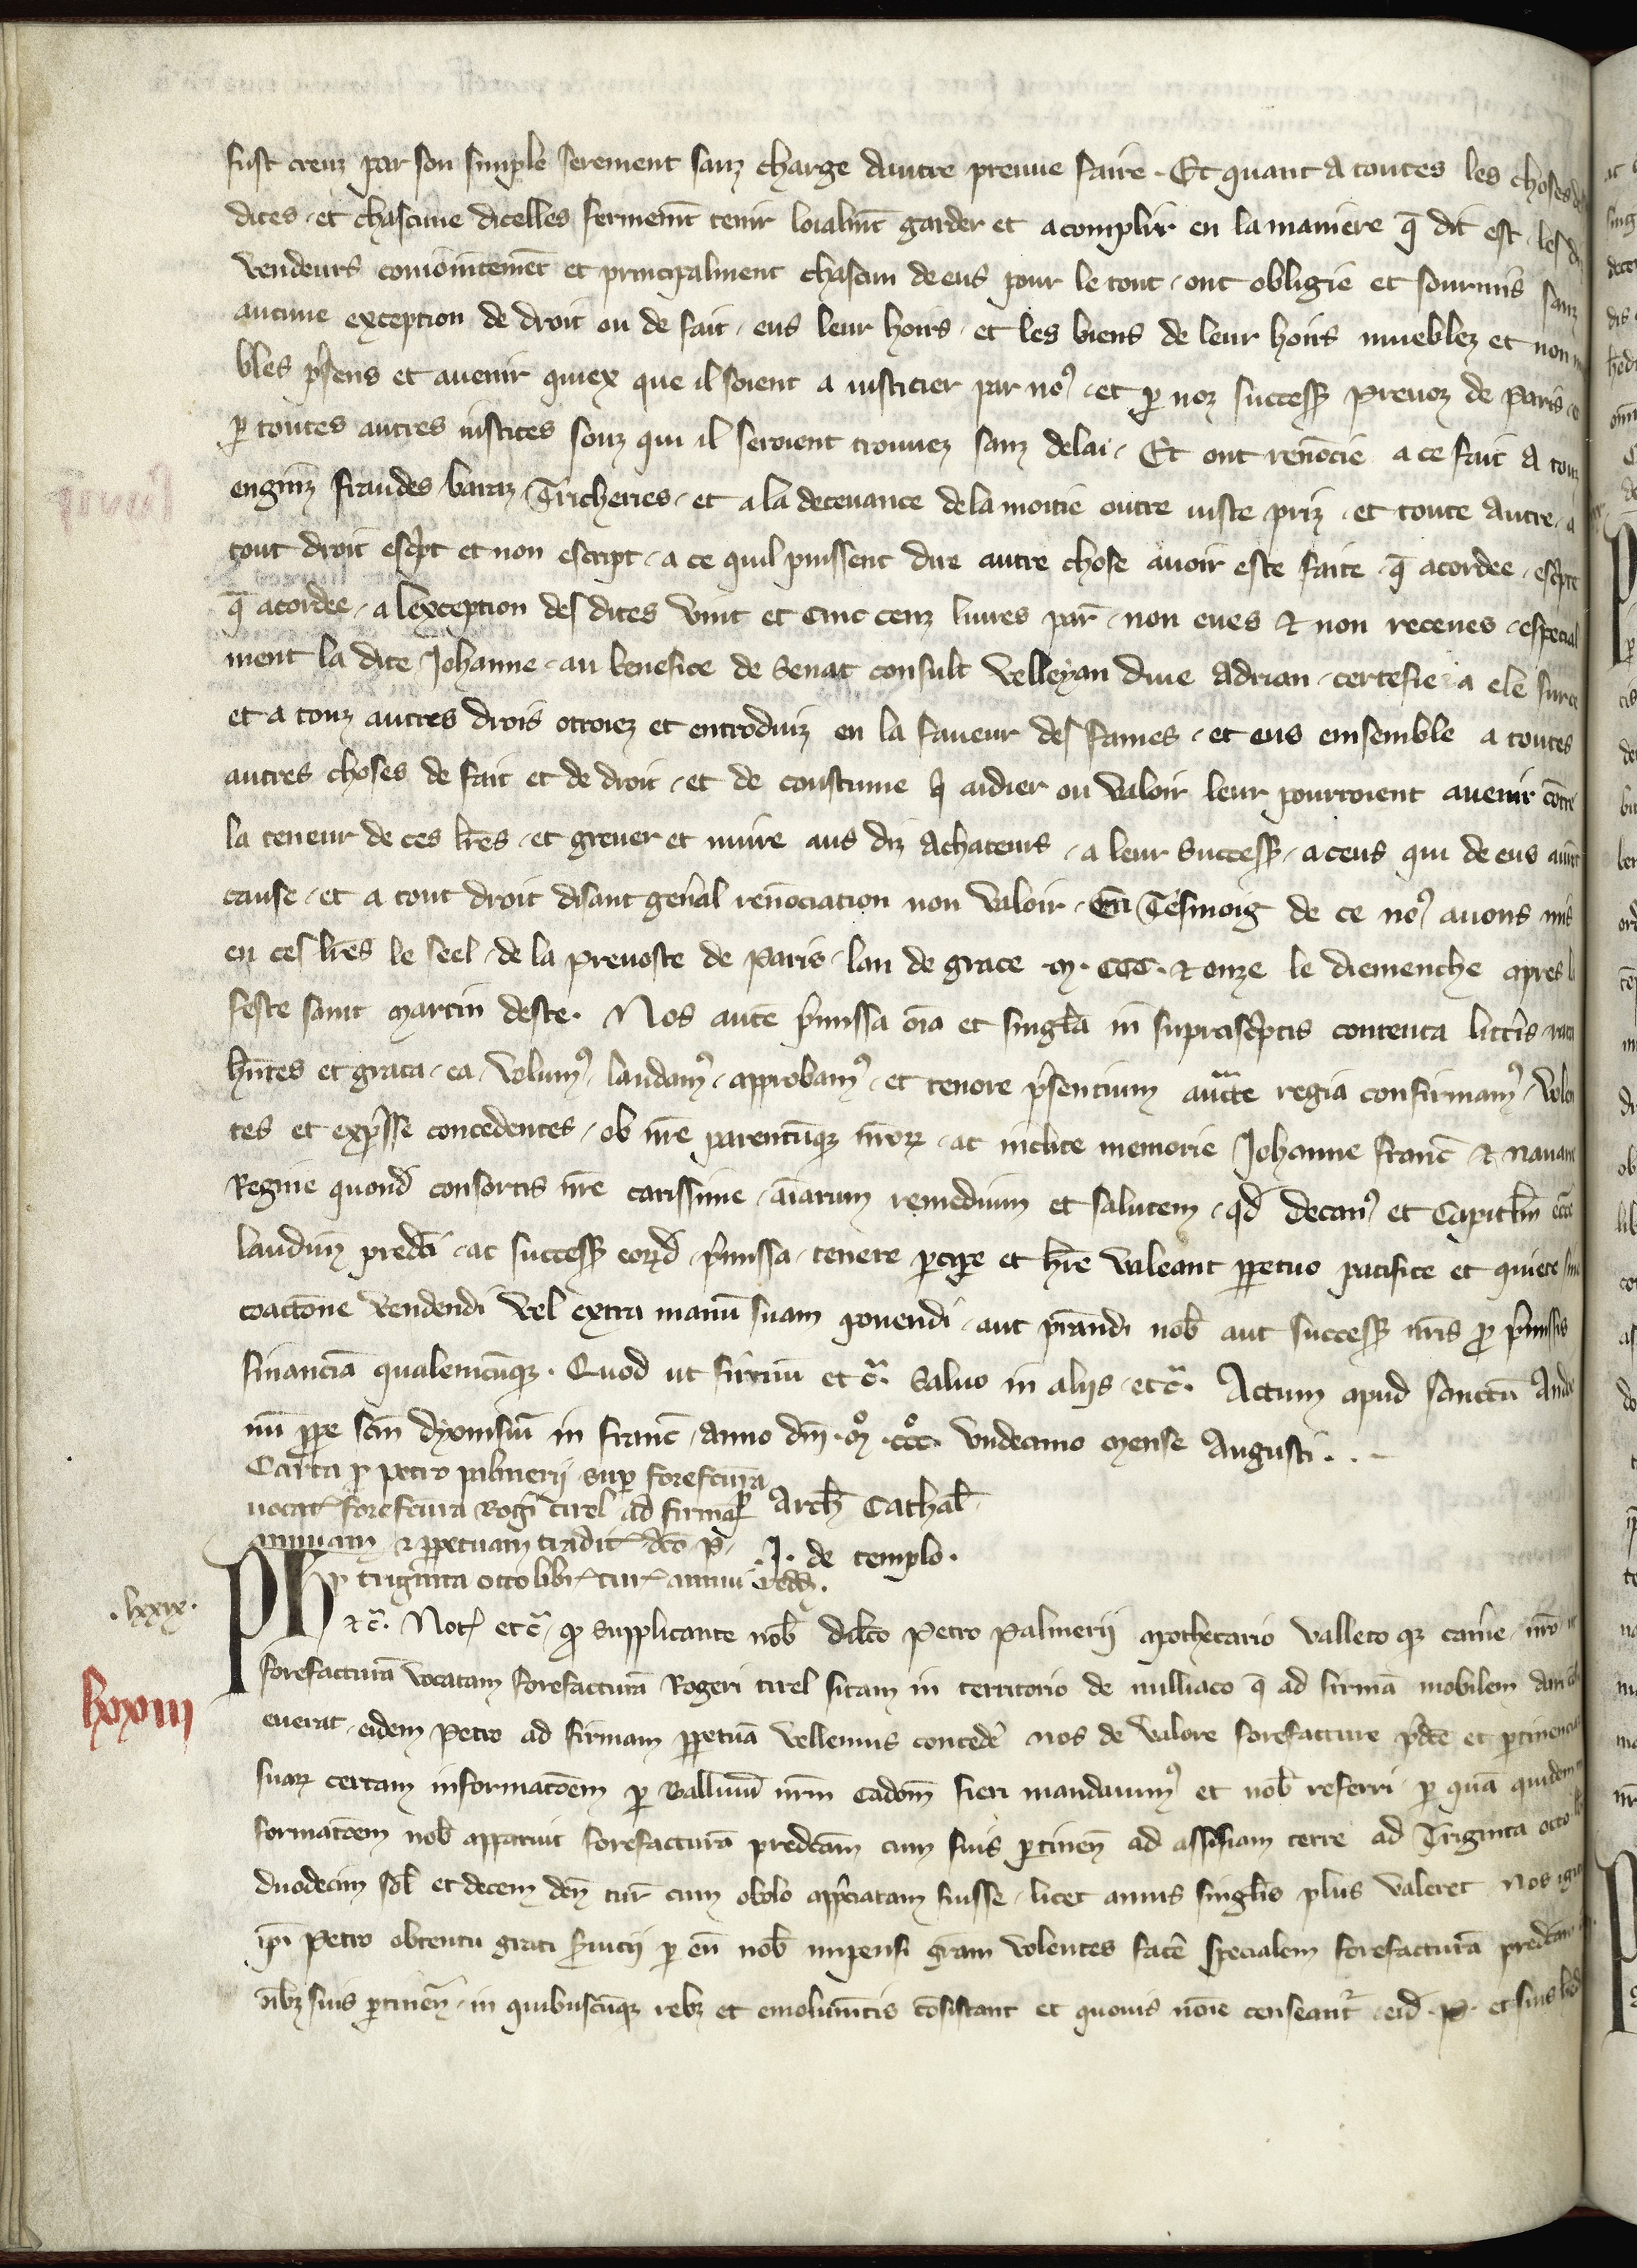 fust creuz par son simple serement sanz charge dautre preuue faire . Et quant a toutes les choses
dites . et chascune dicelles fermemt tenir loialmt garder et acomplir en la maniere q̄ dit est . les
vendeurs conioinctemēt et principalment chascun de eus pour le tout . ont obligie et sourmis sanz
aucune exception de droit ou de fait . eus leur hoirs . et les biens de leur hoirs mueblez et non
bles p̄sens et auenir quiex que il soient a iusticier par noꝰ . et ꝑ noz success̄ preuoz de Paris
ꝑ toutes autres iustices souz qui il seroient trouuez sanz delai . Et ont renōcie a ce fait a touz
enginz fraudes baraz Tricheries . et a la deceuance de la moitie outre iuste priz . et toute autre . a
tout droit escͥpt et non escript . a ce quil puissent dire autre chose auoir este faite q̄ acordee . escͥpte
q̄ acordee . a lexception des dites vint et cinc cenz liures par̄ . non eues et non receues . especial
ment la dite Johanne . au benefice de Senat consult velleyan diue adrian . certefiee a ele sur ce
et a touz autres drois otroiez et entroduiz en la faueur des fames . et eus ensemble a toutes
autres choses de fait et de droit . et de coustume q̄ aidier ou valoir leur pourroient auenir cōtre
la teneur de ces lr̄es . et greuer et nuire aus diz achateurs . a leur success̄ . a ceus qui de eus aurōt
cause . et a tout droit disant gen̄al renōciation non valoir . En Tesmoig de ce noꝰ auons mis
en ces lr̄es le seel de la preuoste de Paris . lan de grace .m. CCC. et onze le diemenche apres la
feste saint martin deste . Nos aut̄e p̄missa oīa et singl̄a in suprascͥptis contenta litt̄is . rata
hn̄tes et grata . ea . volumꝰ . laudamꝰ . approbamꝰ . et tenore p̄sentium auct̄te regia confirmamꝰ . volen
tes et exp̄sse concedentes . ob nr̄e parentūqꝫ nr̄oꝝ . ac inclite memorie Johanne franc̄ et nauarr̄
Regine quond̄ consortis nr̄e carissime . aīarum remedium et salutem . qd̄ decanꝰ et Capitl̄m ecc̄e
laudun̄ predc̄i . ac success̄ eoꝝd̄ . p̄missa . tenere ꝑcipe et hr̄e valeant ꝑpetuo pacifice et quiete sine
coactōne vendendi vel extra manū suam ponendi . aut p̄standi nob̄ aut success̄ nr̄is ꝓ p̄missis
financiā qualemcūqꝫ . Quod ut firmū etc̄ . Saluo in aliis . etc̄ . Actum apud sanctū Audoe
nū ꝓpe scm̄ dyonisiū in franc̄ . anno dn̄i .mͦ. cccͦ. vndecimo mense Augusti . .
Carta ꝓ petro palmerii sup forefcūra
uocat̄ forefcūra Rogī tirel ad firmā
annuam et ꝑpetuam tradit̄ dc̄o P̄ .
ꝓ triginta octo libr̄ tur̄ annui redd̄ .
ꝑ Arch̄ Cathal̄ .
J. de templo .
.lxxix.
lxxviii
Ph̄ etc̄ . Not̄ etc̄ . qd̄ supplicante nob̄ dilc̄o Petro Palmerii apothecario valleto qꝫ cam̄e nr̄o
forefacturā vocatam forefacturā Rogeri tirel sitam in territorio de nulliaco q̄ ad firmā mobilem dari
euerat . eidem Petro ad firmam ꝑpetuā vellemus concede᷒ nos de valore forefacture p̄dc̄e et ꝑtinenciaꝝ
suaꝝ certam informatōem ꝑ Balliuū nr̄m Cadom̄ fieri mandauimꝰ et nob̄ referri . ꝑ quā quidem
formatōem nob̄ apparuit forefacturā predc̄am cum suis ꝑtinen̄ ad assisiam terre ad Triginta octo
duodecim sol̄ et decem den̄ tur̄ cum obolo app̄ciatam fuisse . licet annis singl̄is plus valeret Nos
ip̄i Petro obtentu grati ẛuicii ꝑ eū nob̄ impensi gr̄am volentes fac̄e specialem forefacturā predc̄am
oībꝫ suis ꝑtinen̄ . in quibuscūqꝫ rebꝫ et emolumt̄is cōsistant et quouis nōie censeant᷒ . eid̄ . P. et suis